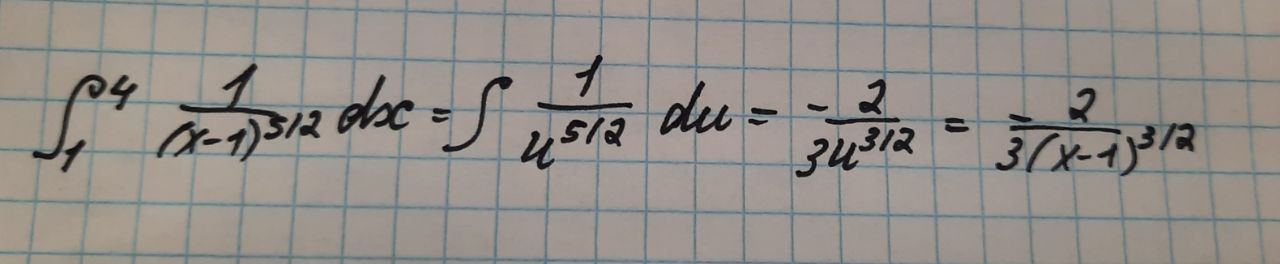 ∫₁⁴ 1/(x-1)^5/2 dx = ∫ 1/u^5/2 du = -2/3u^3/2 = -2/3(x-1)^3/2